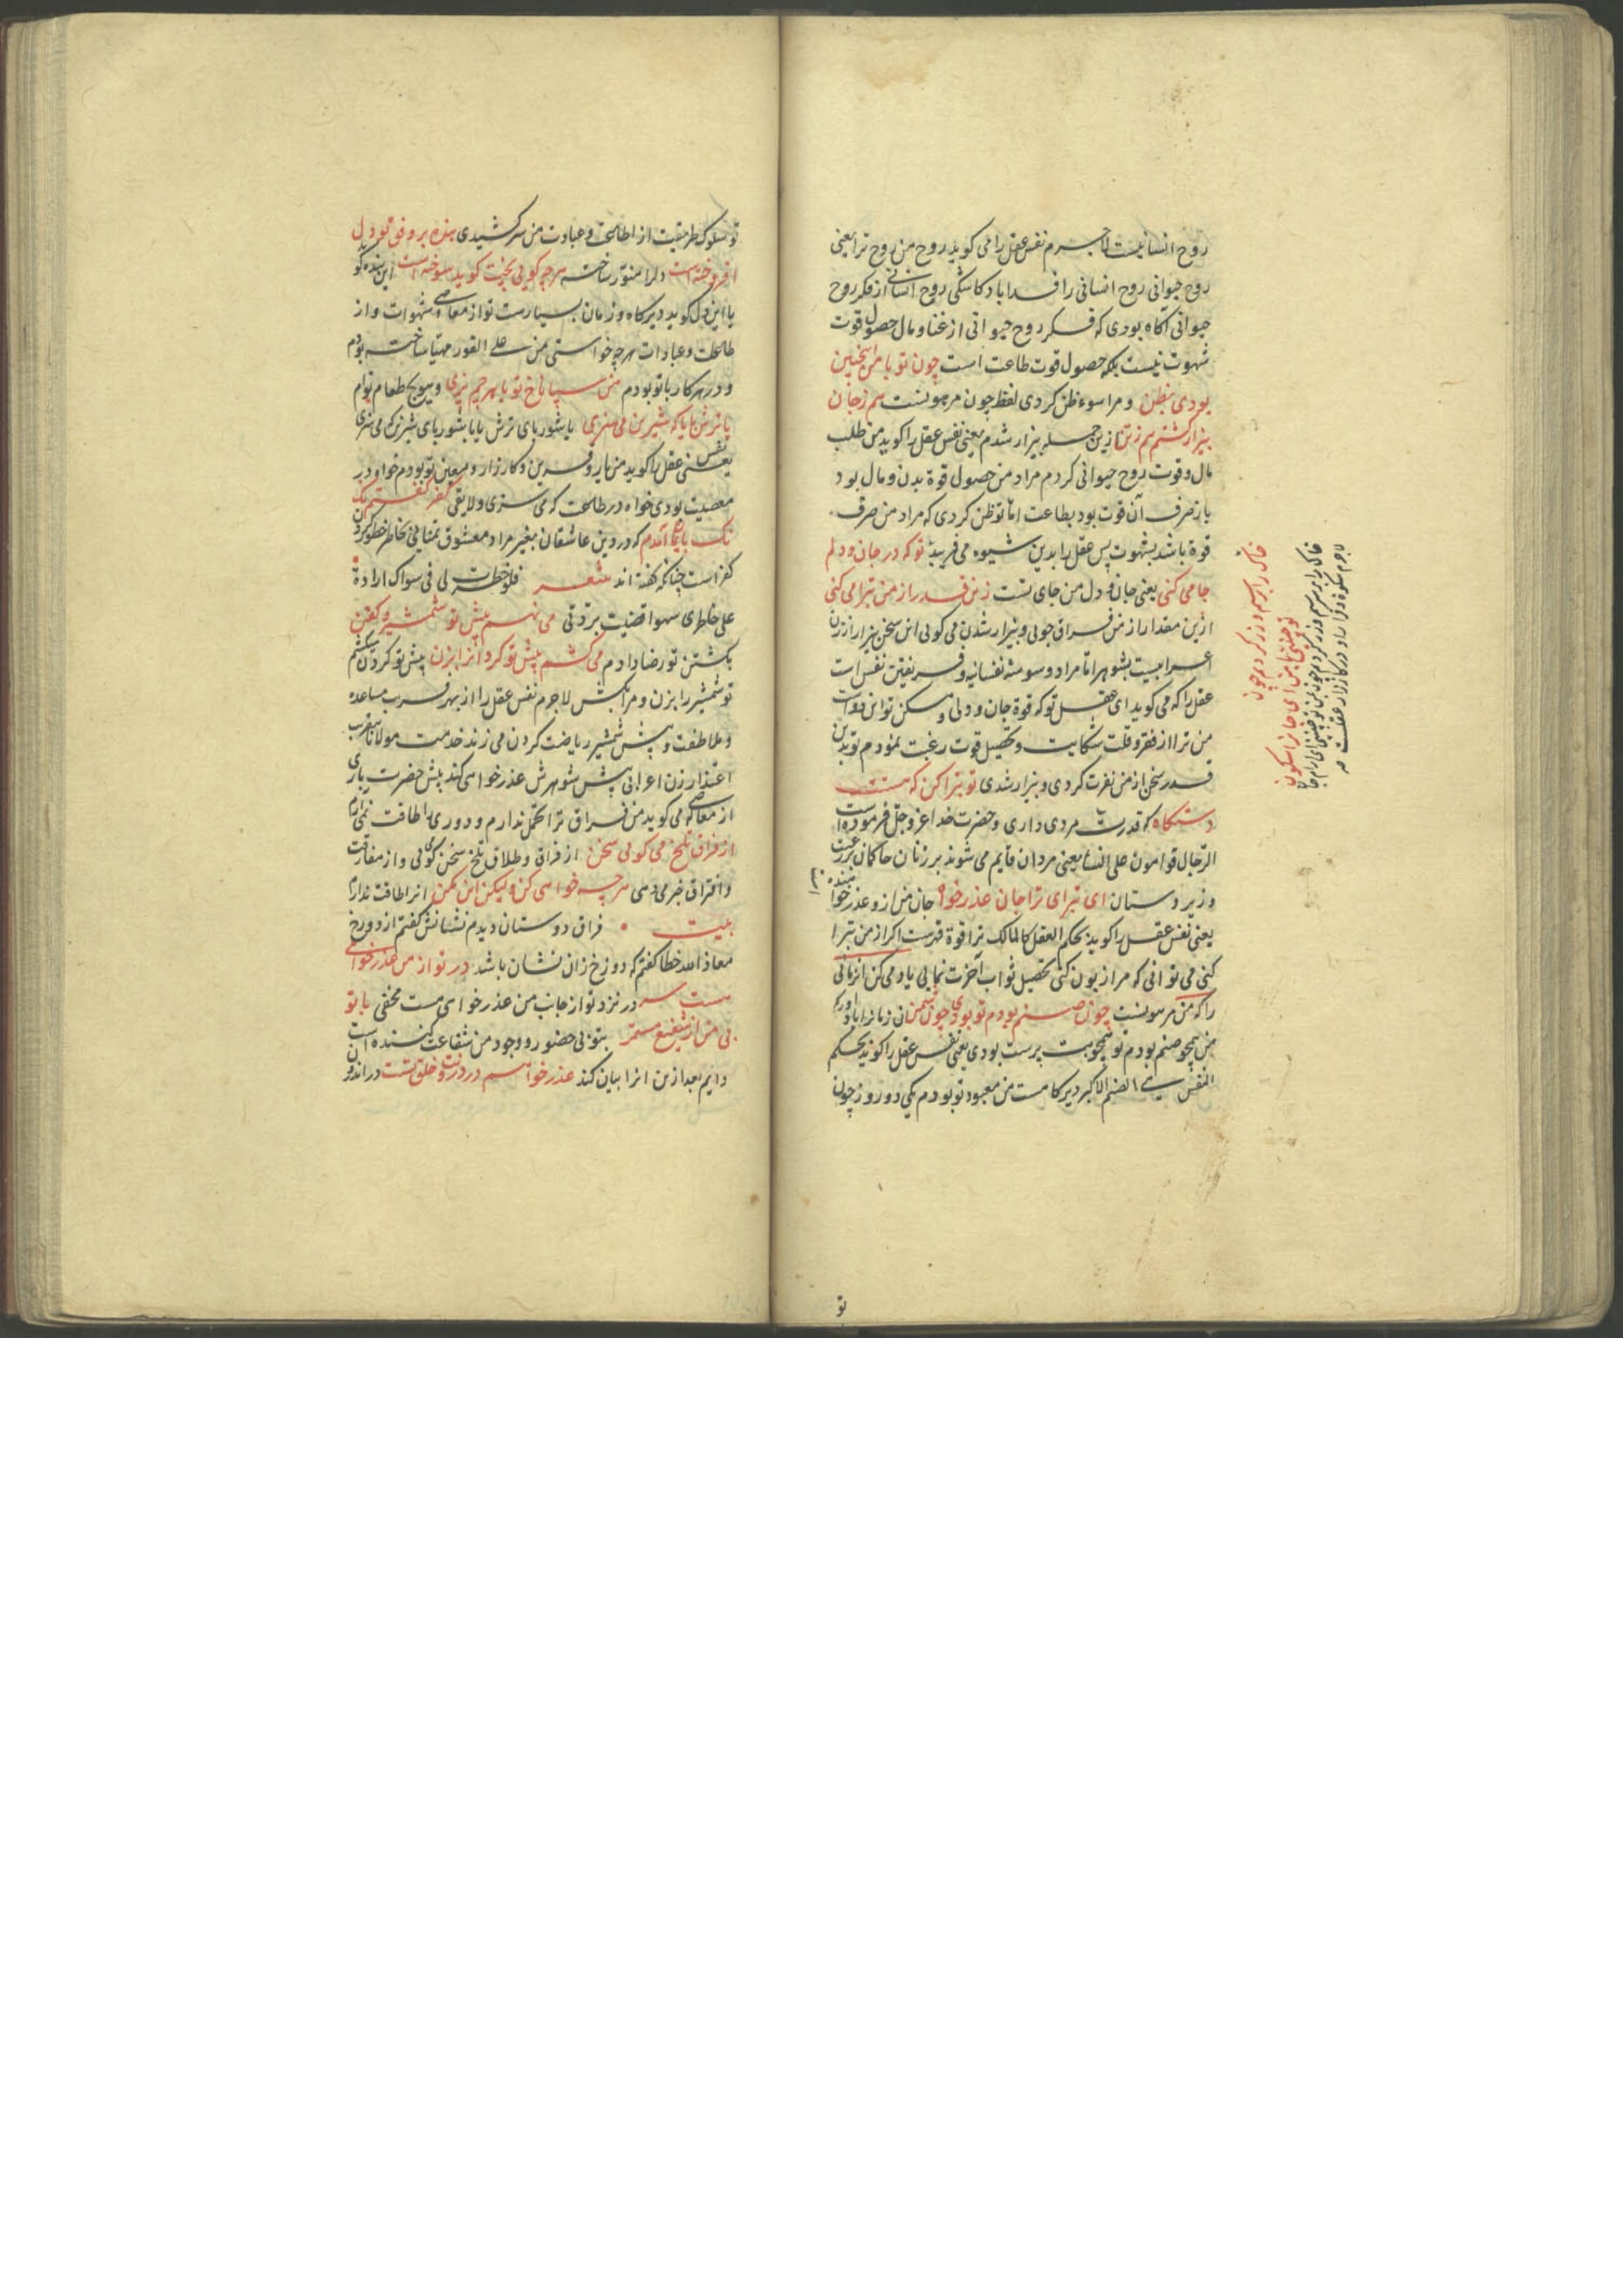 روح انسانیست لاجرم نفس عقل را می کوید روح من روح ترا یعنی
روح حیوانی روح انسانی را فدا باد کاشکی روح انسانی از فکر روح
حیوانی آکاه بودی که فکر روح حیوانی از غنا و مال حصول قوت
شهوت نیست بلکه حصول قوت طاعت است چون تو با من اینچنین
بودی بظن و مرا سوء ظن کردی لفظ چون مرهونست هم ز جان
بیزار کشتم هم ز تن ازین جمله بیزار شدم یعنی نفس عقل را کوید من طلب
مال و قوت روح حیوانی کردم مراد من حصول قوة بدن و مال بود
باز صرف آن قوت بود بطاعت اما تو ظن کردی که مراد من صرف
قوة باشد بشهوت پس عقل را بدین شیوه می فریبد تو که در جان و دلم
جا می کنی یعنی جان و دل من جای تست زین قدر از من تبرا می کنی
ازین مقدار از من فراق جویی و بیزار شدن می کویی این سخن بیزار از زن
اعرابیست بشوهر اما مراد وسوسه نفسانیه و فریفتن نفس است
عقل را که می کوید ای عقل تو که قوة جان و دلی و مسکن تو این دو است
من ترا از فقر و قلت شکایت و تحصیل قوت رغبت نمودم تو بدین
قدر سخن از من نفرت کردی و بیزار شدی تو تبرا کن که هستت
دستکاه که قدرت مردی داری و حضرت خدا عز و جل فرموده است
الرجال قوامون علی النساء یعنی مردان قایم می شوند بر زنان حاکمان بر رعیت
و زیر دستان ای تبرای ترا جان عذر خواه جان من از تو عذر خواهنده
یعنی نفس عقل را کوید بحکم العقل کالمالک ترا قوة قهرست اکر از من تبرا
کنی می توانی که مرا زبون کنی تحصیل ثواب آخرت نمایی یاد می کن آن زمانی
را که من مرهونست چون صنم بودم تو بودی چون شمن آن زمانرا یاد آور که
من همچو صنم بودم تو همچو بت پرست بودی یعنی نفس عقل را کوید بحکم
النفس هی الصنم الاکبر دیرکاهست من معبود تو بودم یکی دو روز چون
خاک را بر سیم و زر کردیم چون
تو چنینی با من ای جانرا سکون
تو
تو سلوک طریقت از اطاعت و عبادت من سرکشیدی بنده بر وفق تو دل
افروخته است دلرا منور ساخته هرچه کویی پخت کوید سوخته است این بنده کو
یا این دل کوید دیرکاه و زمان بسیارست تو از معاصی و شهوات و از
طاعات و عبادات هرچه خواستی من علی الفور مهیا ساخته بودم
و در هر کار با تو بودم من سپاناخ تو با هرچم پزی و بهر طعام توام
یا ترش با یا که شیرین می سزی یا بشوربای ترش یا بشوربای شیرین که می سزی
یعنی نفس عقل را کوید من یار و قرین و کارزار و معین تو بودم خواه در
معصیت بودی خواه در طاعت که می سزی و لایقی کفر کفتم نک
بایمان آمدم که در دین عاشقان بغیر مراد معشوق تمنایی بخاطر خطور کردن
کفر است چنانکه کفته اند شعر فلو خطرت لی فی سواک ارادة
علی خاطری سهوا قضیت بردتی می نهم پیش تو شمشیر و کفن
بکشتن تو رضا دادم می کشم پیش تو کردن را بزن پیش تو کردن میکشم
تو شمشیر را بزن و مرا بکش لاجرم نفس عقل را از بهر قرب مساعده
و ملاطفت و پیش شمشیر ریاضت کردن می زند خدمت مولانا بتقریب
اعتذار زن اعرابی پیش شوهرش عذر خواهی کند پیش حضرت باری
از معاصی که می کوید من فراق ترا تحمل ندارم و دوری را طاقت نمی آرم
از فراق تلخ می کویی سخن از فراق و طلاق تلخ سخن کویی و از مفارقت
و افتراق خبر می دهی هرچه خواهی کن ولیکن این مکن آنرا طاقت ندارم
بیت فراق دوستان دیدم نشانش کفتم از دوزخ
معاذ الله خطا کفتم که دوزخ زان نشان باشد در تو از من عذر خواهی
هست سر در نزد تو از جانب من عذر خواهی هست مخفی با تو
بی من او شفیع مستمر بتو بی حضور و وجود من شفاعت کننده است
دایم بعد ازین آنرا بیان کند عذر خواهم در درونت خلق تست در اندرون